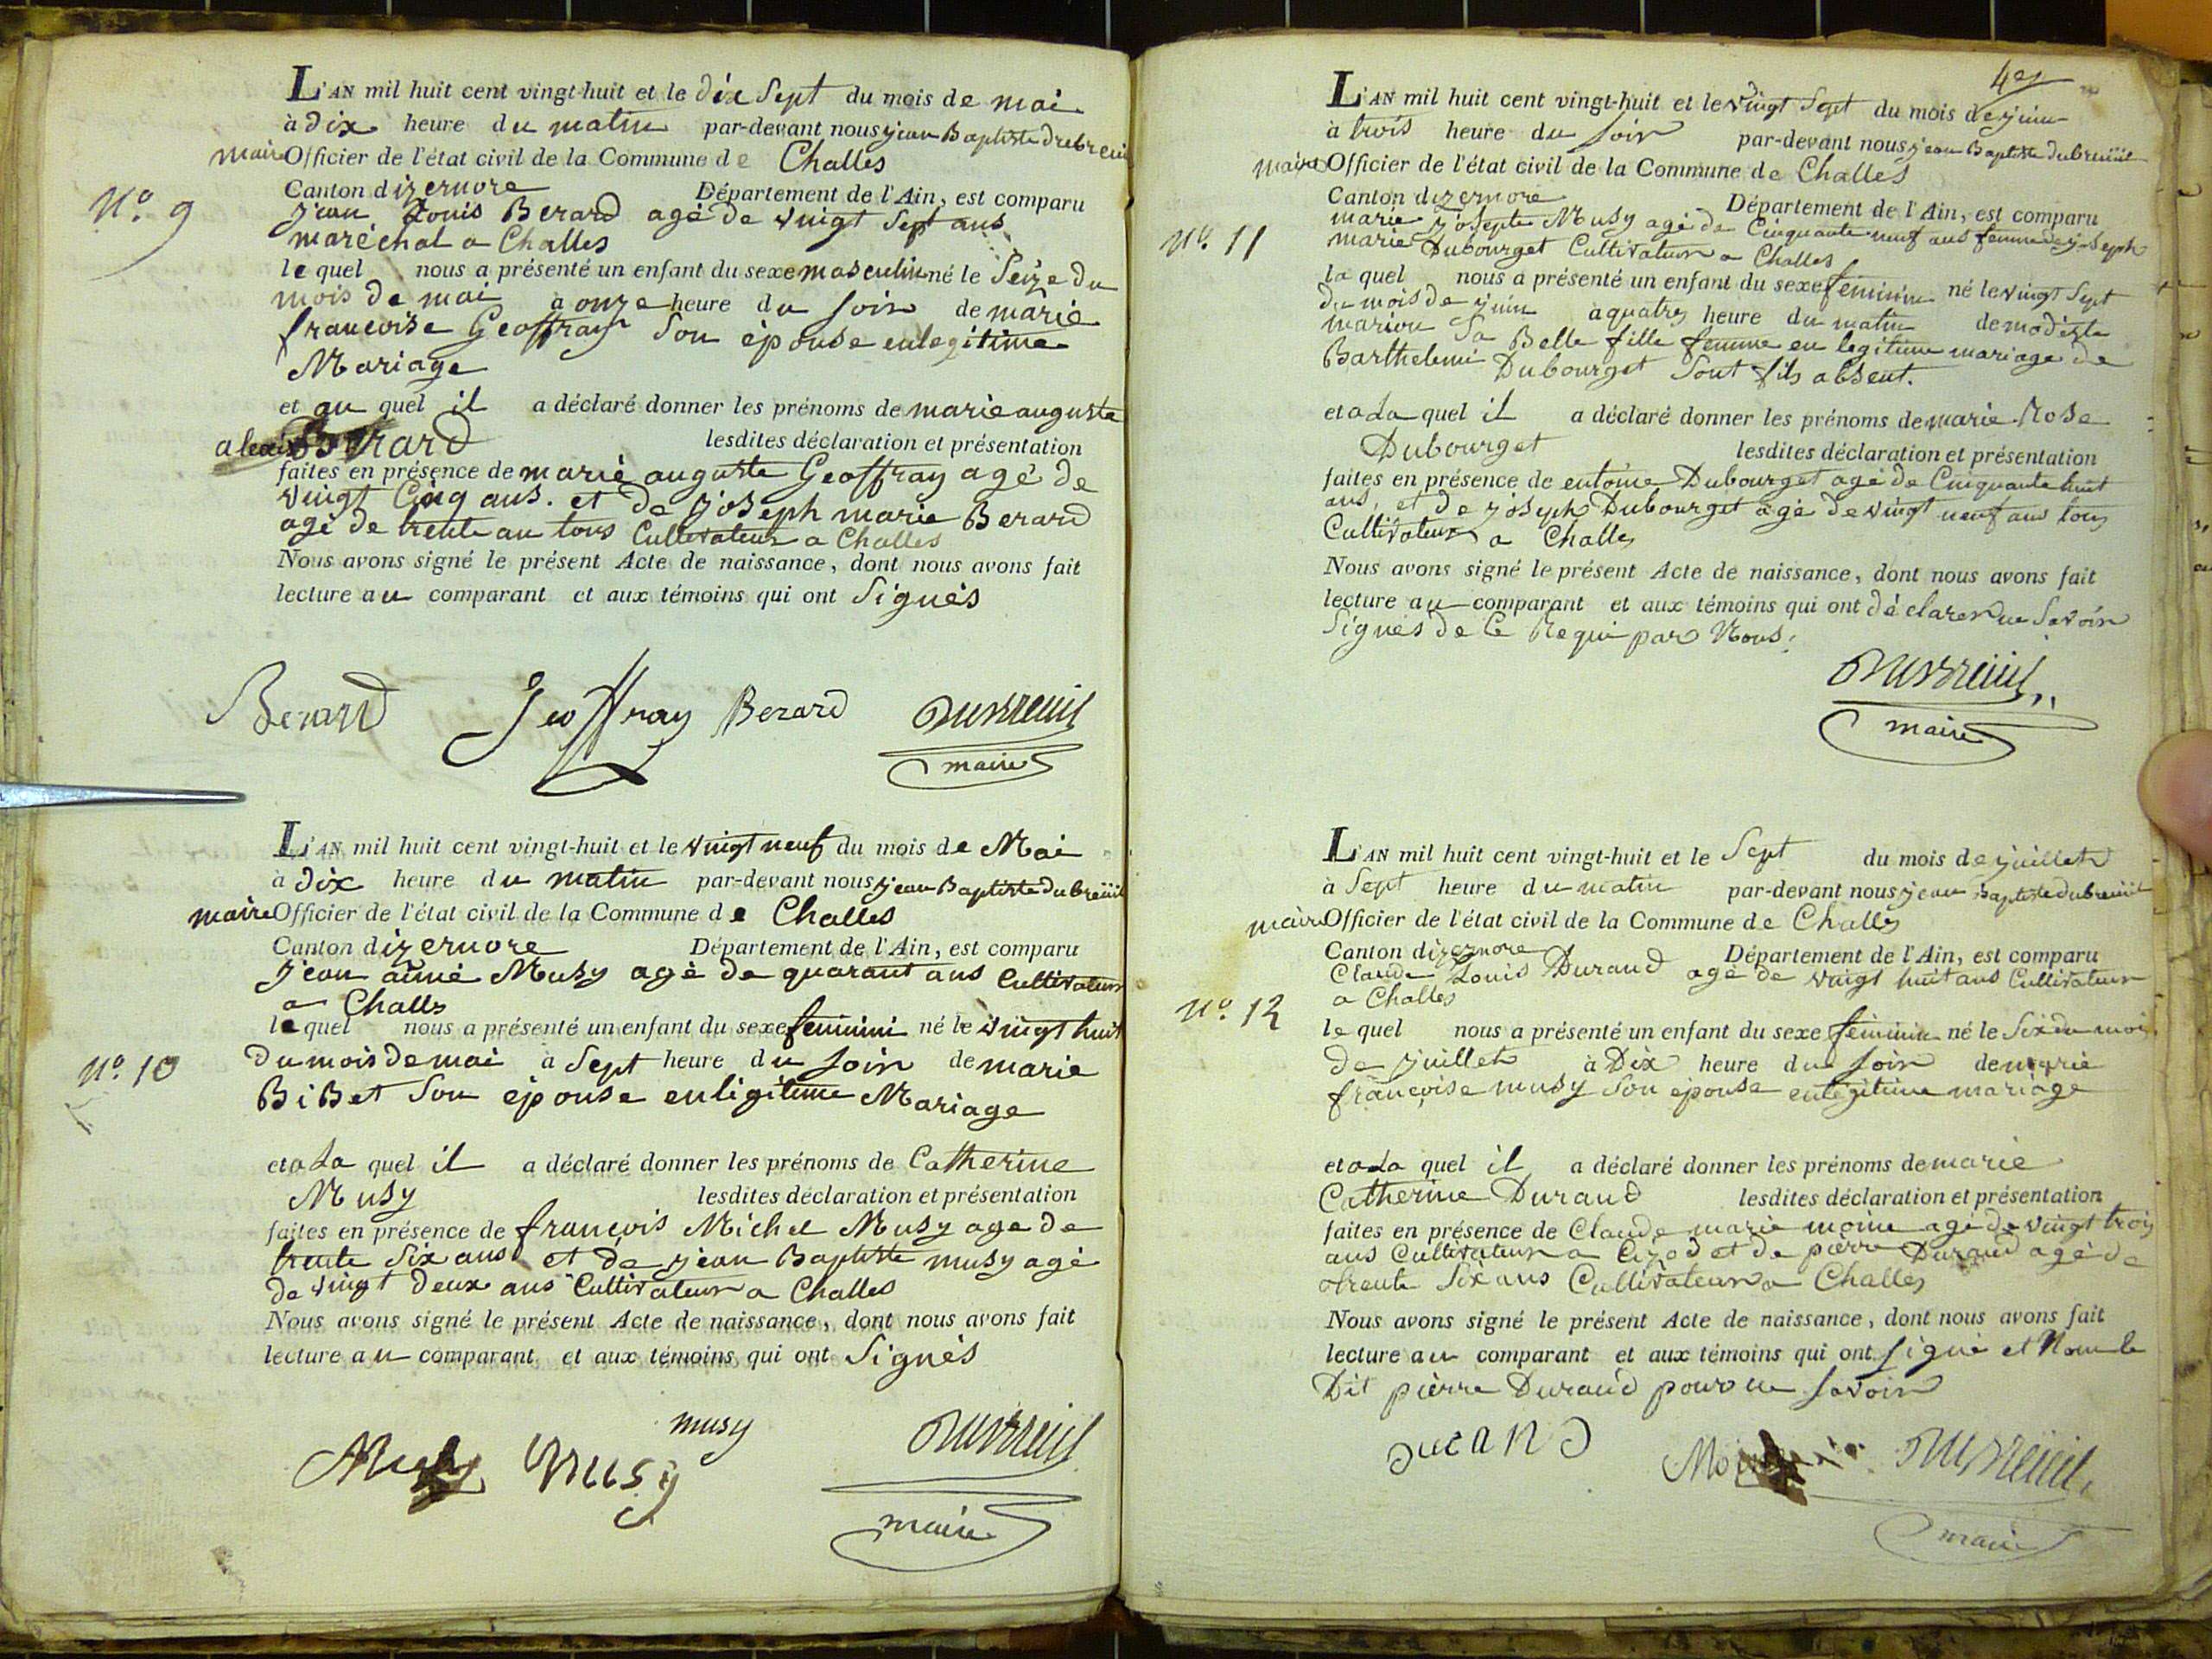 L'AN mil huit cent vingt-huit et le dix Sept du mois de mai
à dix heure du matin par-devant nous jean Baptiste dubreuil
maire Officier de l'état civil de la Commune de Challes
Canton dizernore Département de l'Ain, est comparu
N.º 9
jean Louis Berard agé de vingt Sept ans
maréchal a Challes
le quel nous a présenté un enfant du sexe masculin né le Seize du
mois de mai a onze heure du soir de marie
francoise Geoffray Son épouse en legitime
Mariage
et au quel il a déclaré donner les prénoms de marie auguste
alexis Berard lesdites déclaration et présentation
faites en présence de marie auguste Geoffray agé de
vingt Cinq ans. et de joseph marie Berard
agé de trente an tous Cultivateur a Challes
Nous avons signé le présent Acte de naissance, dont nous avons fait
lecture au comparant et aux témoins qui ont Signés
Berard Geoffray Berard Dubreuil
maire
L'AN mil huit cent vingt-huit et le vingt neuf du mois de Mai
à dix heure du matin par-devant nous jean Baptiste dubreüil
maire Officier de l'état civil de la Commune de Challes
Canton dizernore Département de l'Ain, est comparu
jean aimé Musy agé de quarant ans Cultivateur
a Challs
le quel nous a présenté un enfant du sexe feminini né le vingt huit
N.º 10
du mois de mai à Sept heure du soir de marie
BiBet Son épouse en ligitime Mariage
et a La quel il a déclaré donner les prénoms de Catherine
Musy lesdites déclaration et présentation
faites en présence de francois Michel Musy age de
trente Six ans et de jean Baptiste musy agé
de vingt deux ans Cultivateur a Challes
Nous avons signé le présent Acte de naissance, dont nous avons fait
lecture au comparant et aux témoins qui ont Signés
Musy Musy musy Dubreuil
maire
L'AN mil huit cent vingt-huit et le vingt Sept du mois de juin
à trois heure du soir par-devant nous jean Baptiste dubreüil
maire Officier de l'état civil de la Commune de Challes
Canton dizernore Département de l'Ain, est comparu
N.º 11
marie josepte Musy agé de Cinquante neuf ans femme de joseph
marie Dubourget Cultivateur a Challes
la quel nous a présenté un enfant du sexe feminin né le vingt Sept
du mois de juin a quatres heure du matin de modeste
marion Sa Belle fille femme en legitime mariage de
Barthelemi Dubourget Sont fils absent.
et a La quel il a déclaré donner les prénoms de marie Rose
Dubourget lesdites déclaration et présentation
faites en présence de entoine Dubourget agé de Cinquante huit
ans, et de joseph Dubourget agé de vingt neuf ans tous
Cultivateur a Challes
Nous avons signé le présent Acte de naissance, dont nous avons fait
lecture au comparant et aux témoins qui ont déclarer ne Savoir
Signés de Ce Requi par Nous.
Dubreüil
maire
L'AN mil huit cent vingt-huit et le Sept du mois de juillet
à Sept heure du matin par-devant nous jean Baptiste dubreüil
maire Officier de l'état civil de la Commune de Challes
Canton dizernore Département de l'Ain, est comparu
Claude Louis Durand agé de vingt huit ans Cultivateur
a Challes
N.º 12
le quel nous a présenté un enfant du sexe féminin né le Six du mois
de juillet à Dix heure du soir de marie
françoise musy son épouse en legitime mariage
et a La quel il a déclaré donner les prénoms de marie
Catherine Durand lesdites déclaration et présentation
faites en présence de Claude marie moine agé de vingt trois
ans Cultivateur a Cizod et de pierre Durand agé de
trente Six ans Cultivateur a Challes
Nous avons signé le présent Acte de naissance, dont nous avons fait
lecture au comparant et aux témoins qui ont signé et Non le
Dit pierre Durand pour ne savoir
Durand Dubreüil
maire